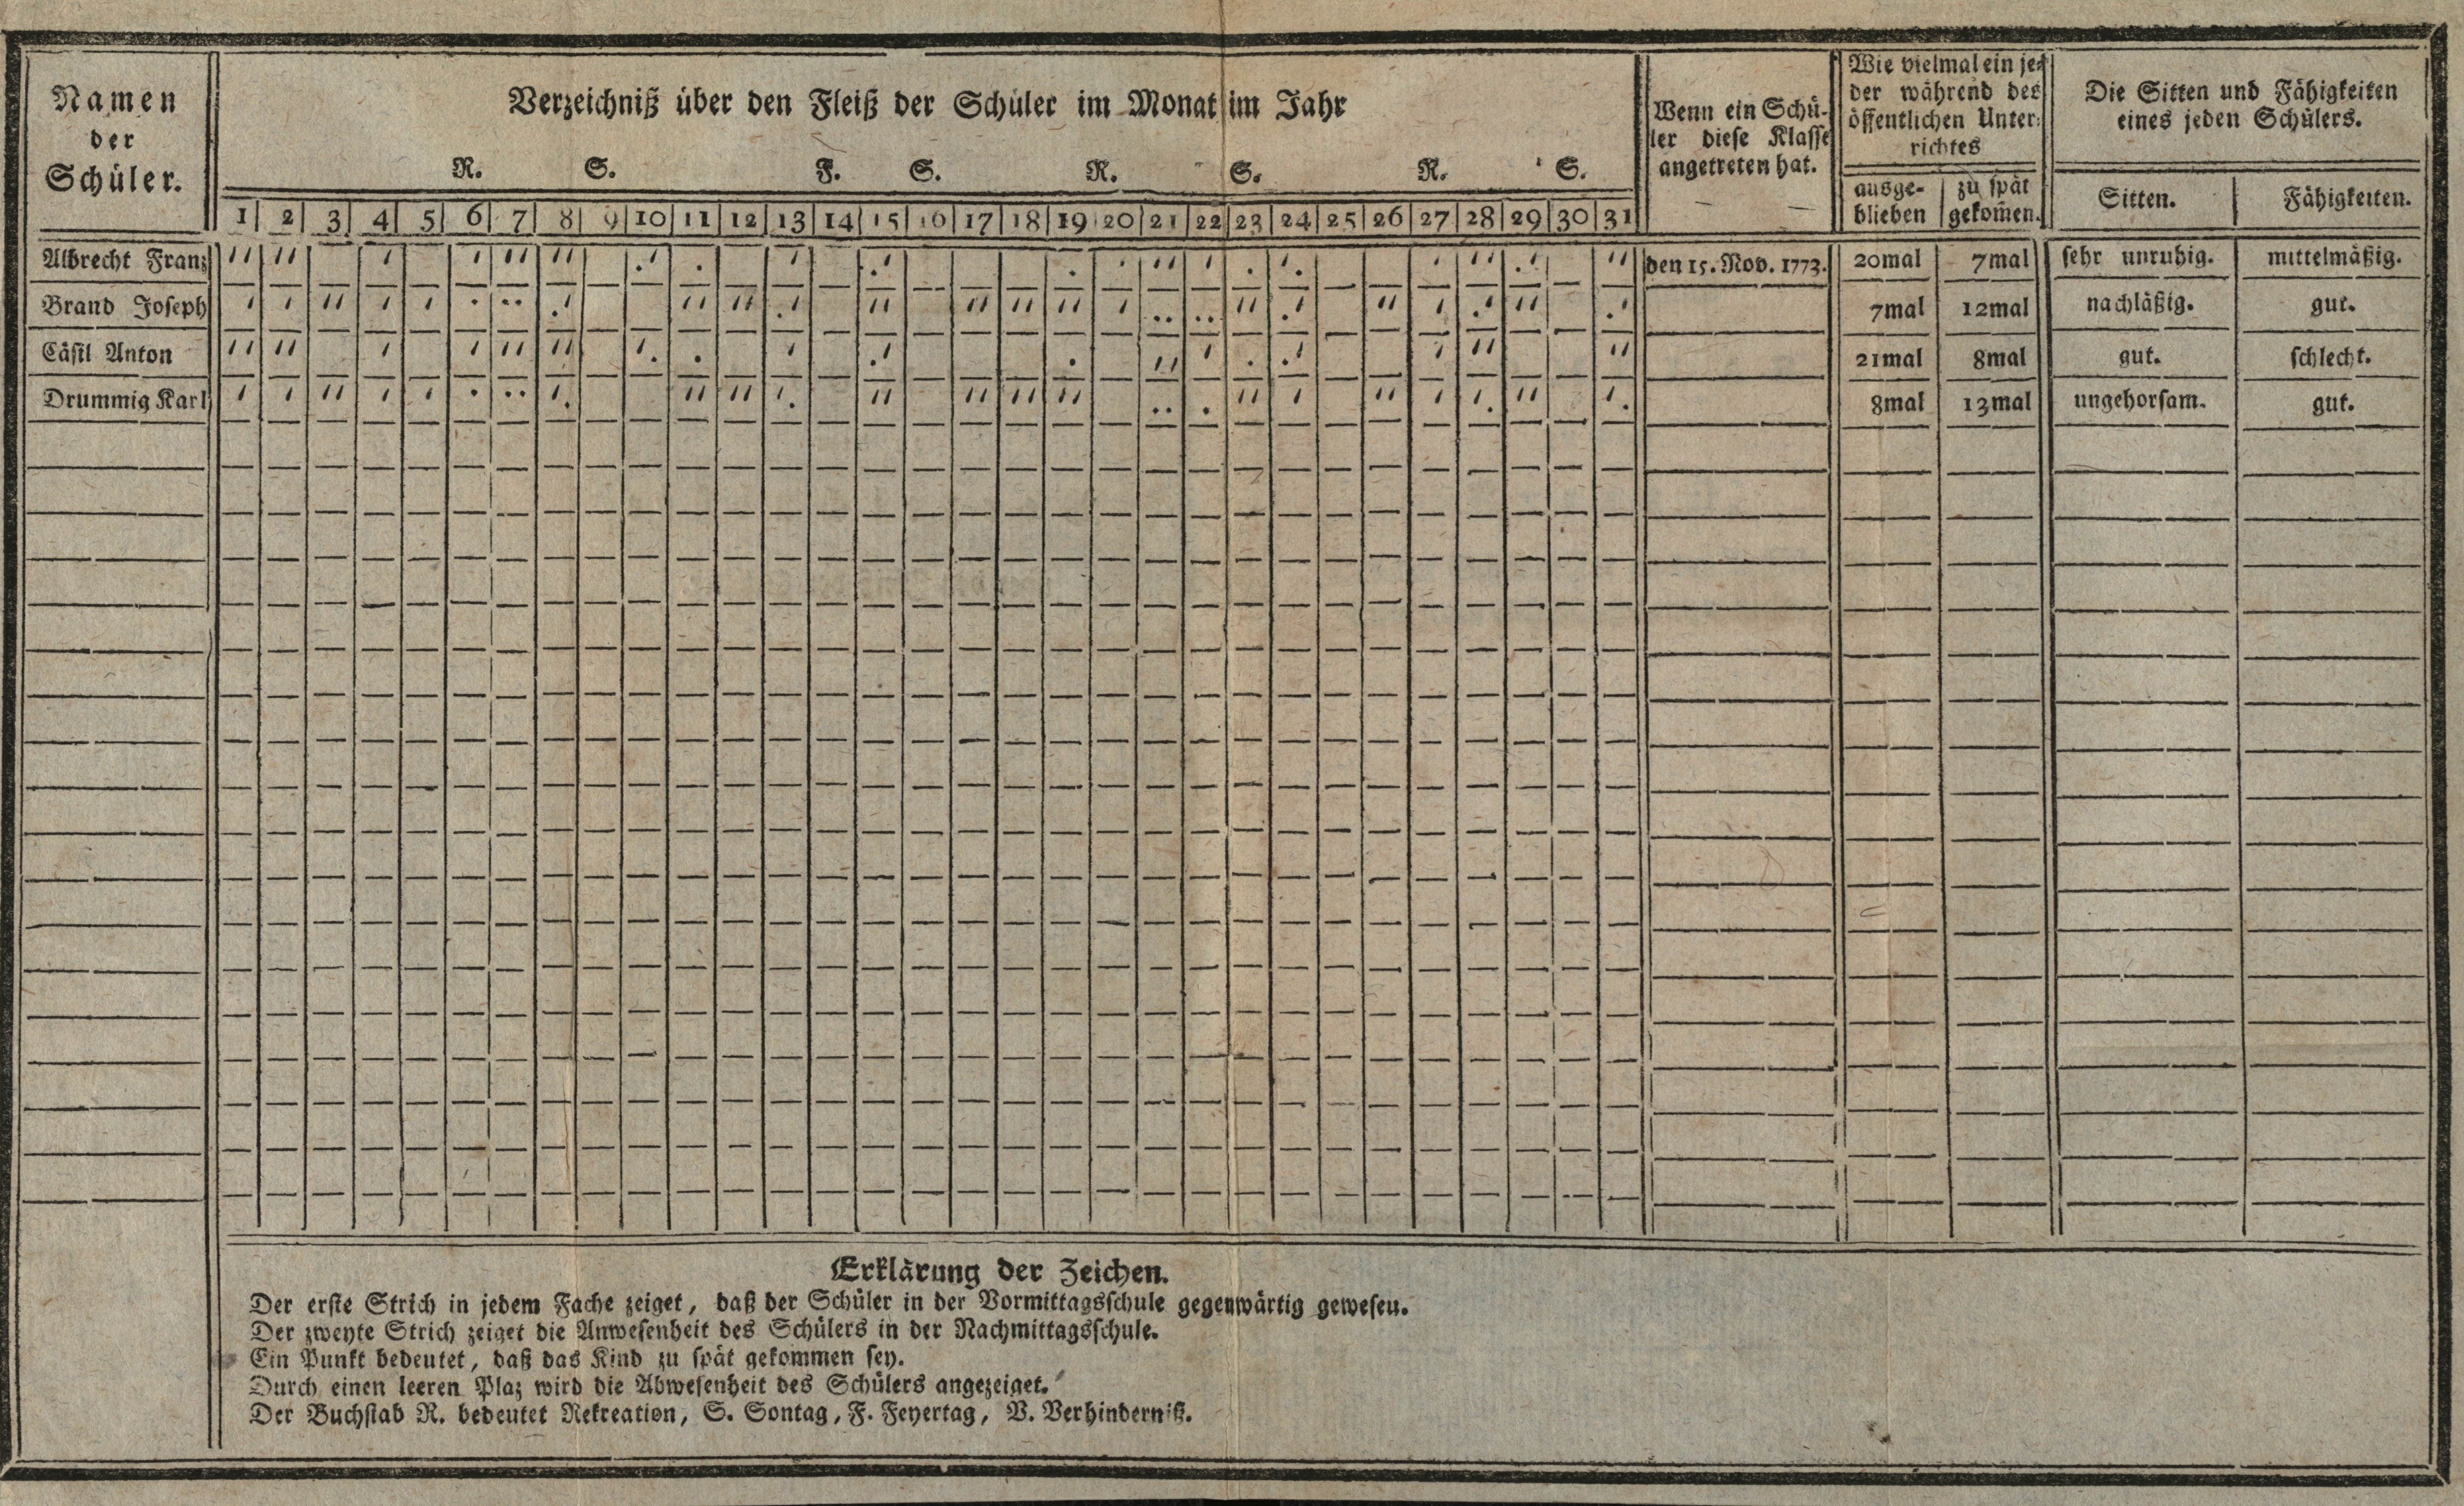 Namen
der
Schüler.
Verzeichniß über den Fleiß der Schüler im Monat im Jahr
R. S. F. S. R. S. R. S.
1 2 3 4 5 6 7 8 9 10 11 12 13 14 15 16 17 18 19 20 21 22 23 24 25 26 27 28 29 30 31
Wenn ein Schü-
ler diese Klasse
angetreten hat.
Wie vielmal ein je-
der während des
öffentlichen Unter-
richtes
ausge-
blieben
zu spät
gekom̄en.
Die Sitten und Fähigkeiten
eines jeden Schülers.
Sitten.
Fähigkeiten.
Albrecht Franz den 15. Nov. 1773. 20mal 7mal sehr unruhig. mittelmäßig.
Brand Joseph 7mal 12mal nachläßig. gut.
Cästl Anton 21mal 8mal gut. schlecht.
Drummig Karl 8mal 13mal ungehorsam. gut.
Erklärung der Zeichen.
Der erste Strich in jedem Fache zeiget, daß der Schüler in der Vormittagsschule gegenwärtig gewesen.
Der zweyte Strich zeiget die Anwesenheit des Schülers in der Nachmittagsschule.
Ein Punkt bedeutet, daß das Kind zu spät gekommen sey.
Durch einen leeren Plaz wird die Abwesenheit des Schülers angezeiget.
Der Buchstab R. bedeutet Rekreation, S. Sontag, F. Feyertag, V. Verhinderniß.